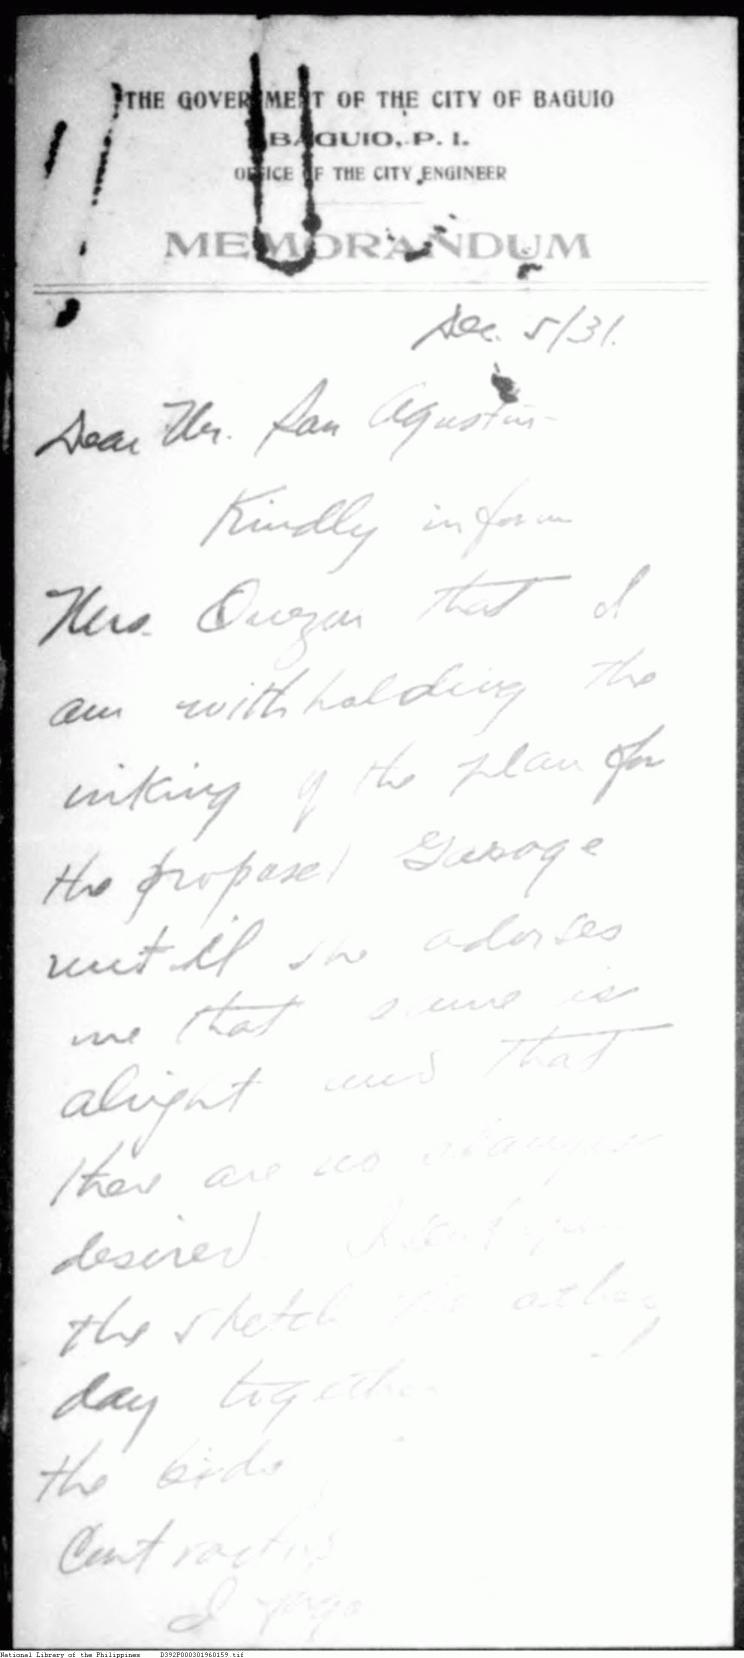 THE GOVERNMENT OF THE CITY OF BAGUIO
BAGUIO, P. I.
OFFICE OF THE CITY ENGINEER
MEMORANDUM
Dec. 5/31.
Dear Mr. San Agustin-
Kindly inform
Mrs. Quezon that I
am withholding the
inking of the plan for
the proposed Garage
untill she advises
me that same is
alright and that
there are no changes
desired. I sent you
the sketch the other
day together
the bids
Contractors
I
National Library of the Philippines D392P000301960159.tif